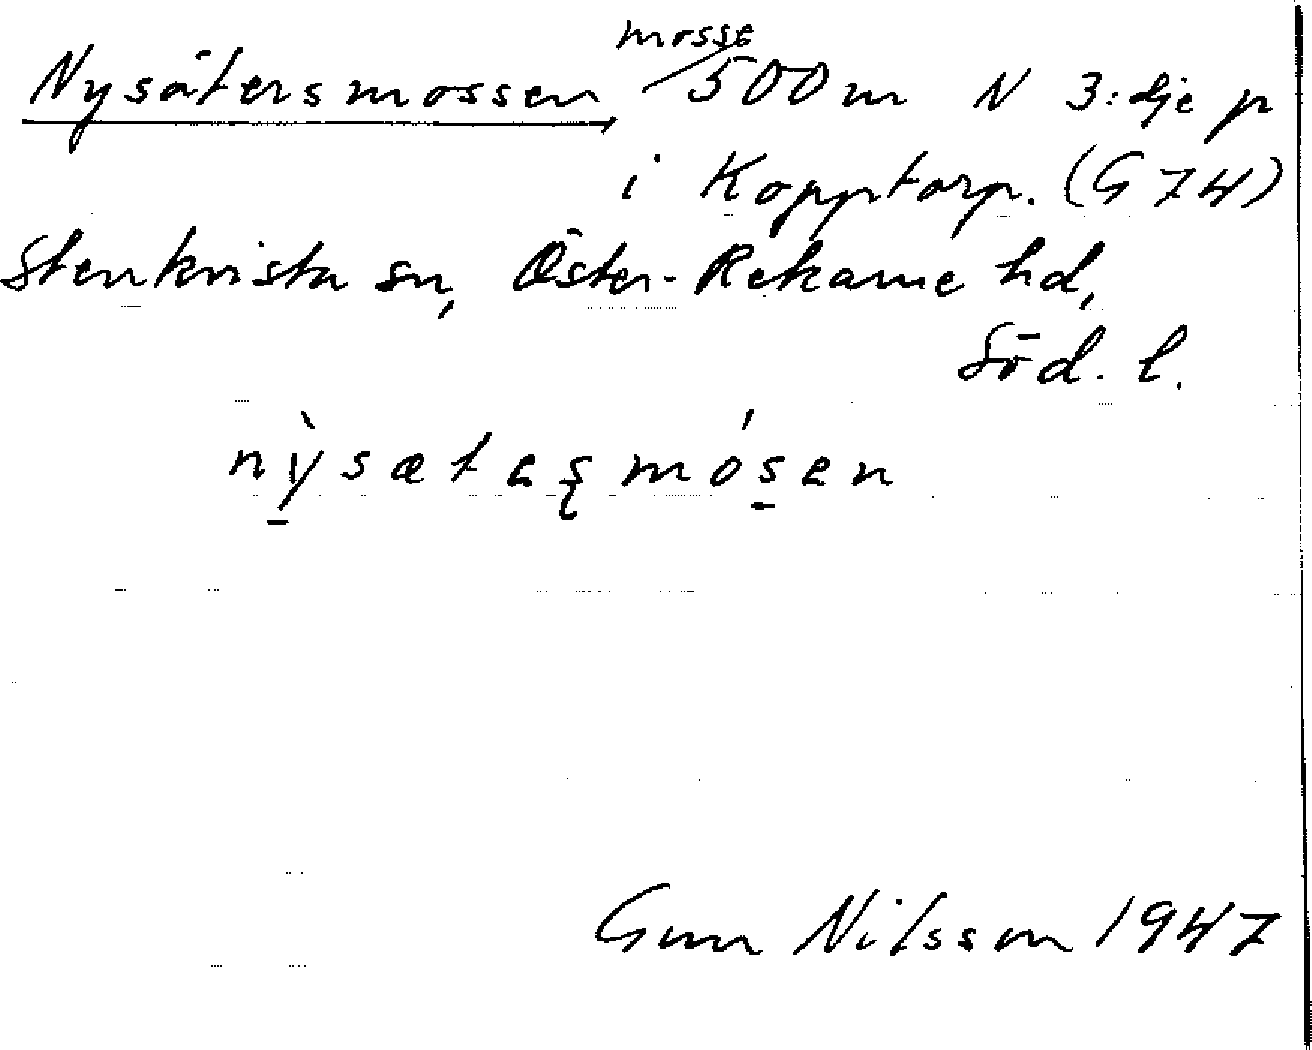 mosse
Nysätersmossen 500 m N 3:dje p
i Kopptorp. (G 74)
Stenkvista sn, Öster-Rekarne hd,
Söd. l.
Gun Nilsson 1947